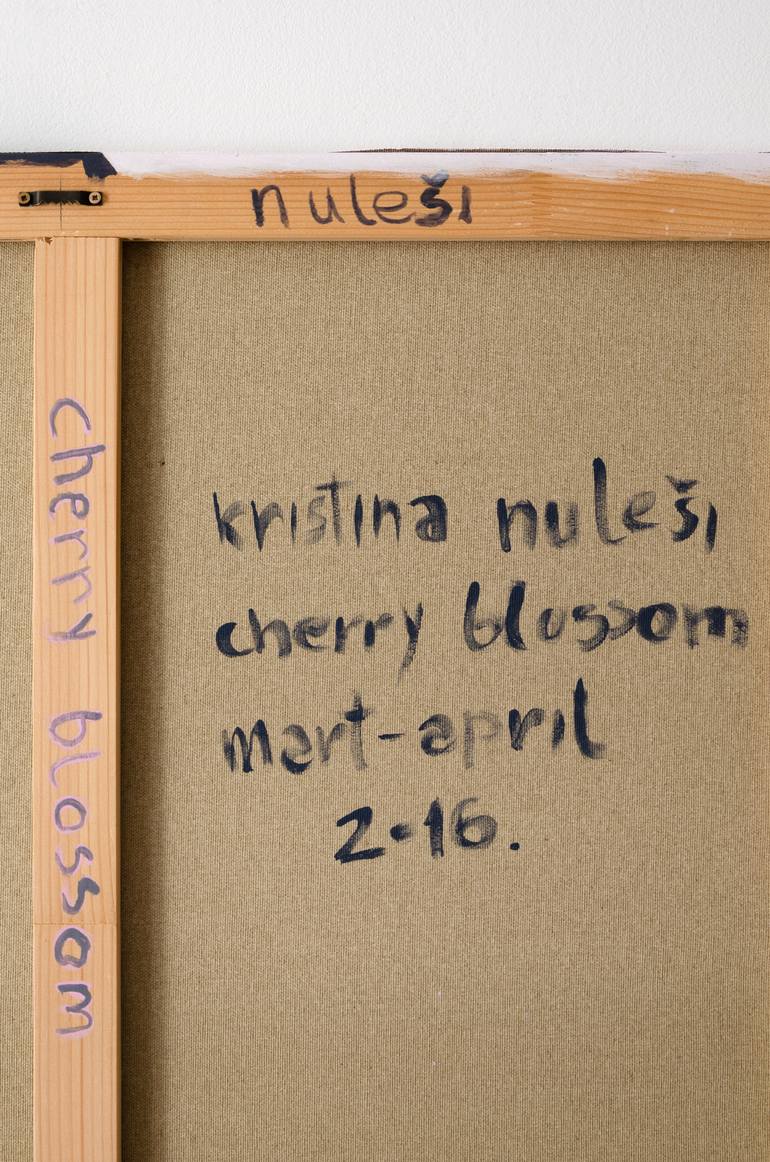 nuleši
cherry blossom
kristina nuleši
cherry blossom
mart-april
2•16.